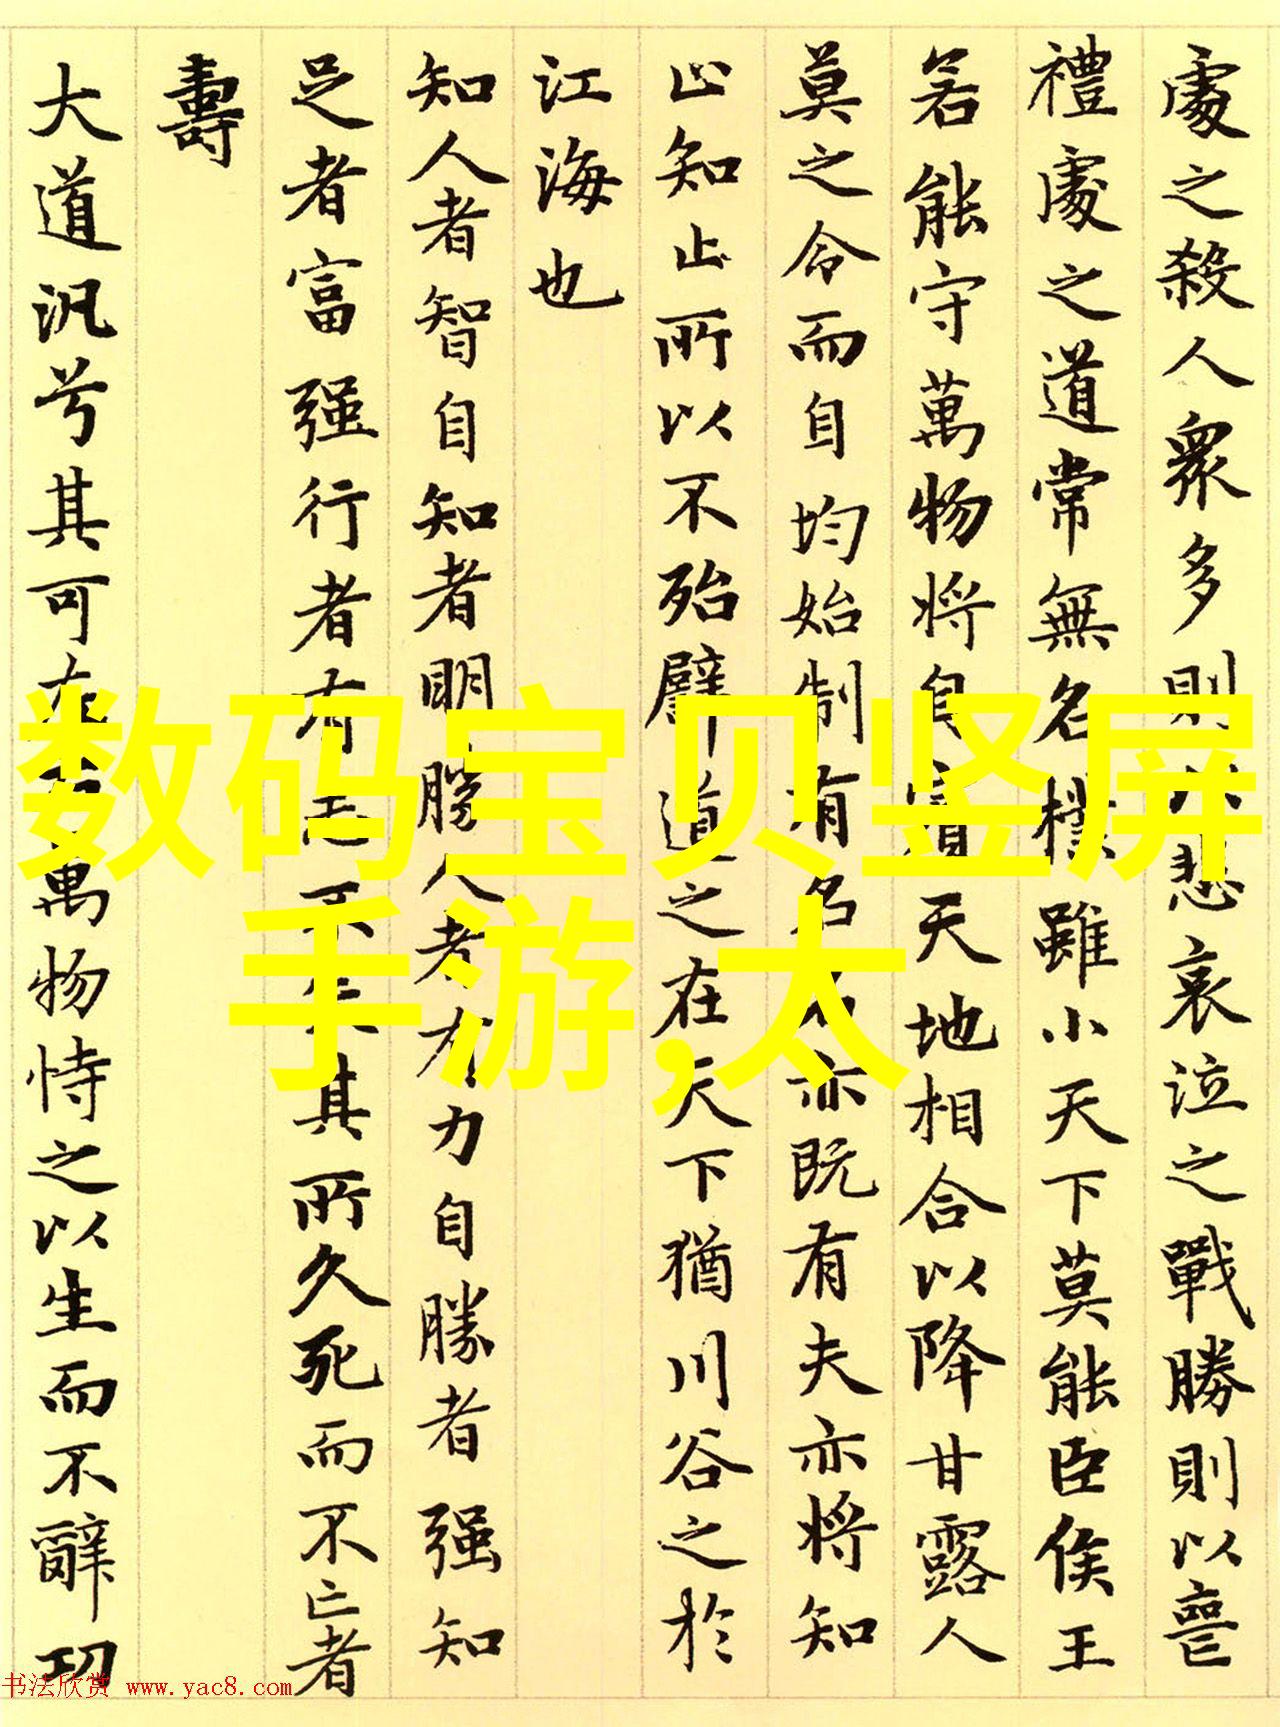 處之殺人衆多則以悲哀泣之戰勝則以喪
禮處之道常無名樸雖小天下莫能臣侯王
若能守萬物將自賓天地相合以降甘露人
莫之令而自均始制有名名亦既有夫亦將知
止知止所以不殆譬道之在天下猶川谷之於
江海也
知人者智自知者明勝人者有力自勝者强知
足者富强行者有志不失其所久死而不亡者
壽
大道汎兮其可左右萬物恃之以生而不辭功
数码宝贝竖屏
手游,太
书法欣赏 www.yac8.com